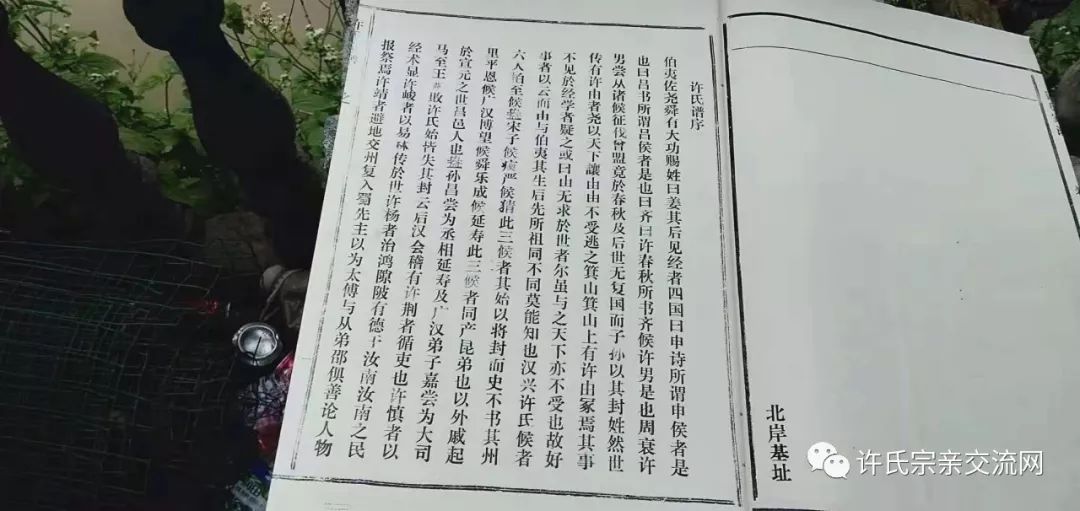 许氏谱序
伯夷佐尧舜有大功赐姓曰姜其后见经者四国曰申诗所谓申侯者是
也曰吕书所谓吕侯者是也曰齐曰许春秋所书齐候许男是也周衰许
男尝从诸候征伐曾盟竟於春秋及后世无复国而子孙以其封姓然世
传有许由者尧以天下讓由由不受逃之箕山箕山上有许由冢焉其事
不见於经学者疑之或曰山无求於世者尔虽与之天下亦不受也故好
事者以云而由与伯夷其生后先所祖同不同莫能知也汉兴许氏候者
六人柏至候盎宋子候瘛严候猜此三候者其始以将封而史不书其州
里平恩候广汉博望候舜乐成候延寿此三候者同产昆弟也以外戚起
於宣元之世昌邑人也盎孙昌尝为丞相延寿及广汉弟子嘉尝为大司
马至王莽败许氏始皆失其封云后汉会稽有许荆者循吏也许慎者以
经术显许峻者以易林传於世许杨者治鸿隙陂有德于汝南汝南之民
报祭焉许靖者避地交州复入蜀先主以为太傅与从弟邵俱善论人物
北岸基址
许氏宗亲交流网